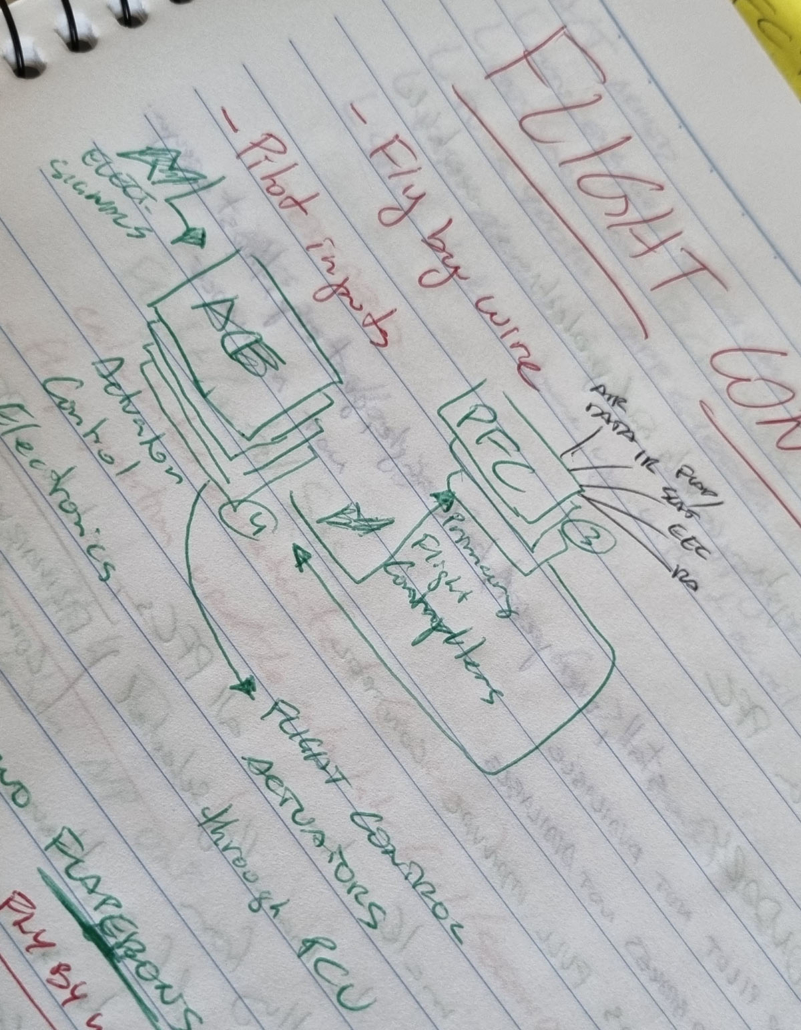 FLIGHT CON
- Fly by wire
- Pilot inputs
ELECT.
SIGNALS
ACE
4
Actuator
Control
Electronics
PFC
3
Primary
Flight
Computers
AIR
DATA IR
FLAP/
SLAT
EEC
RA
FLIGHT CONTROL
ACTUATORS
through PCU
FLAPERONS
FLY BY W